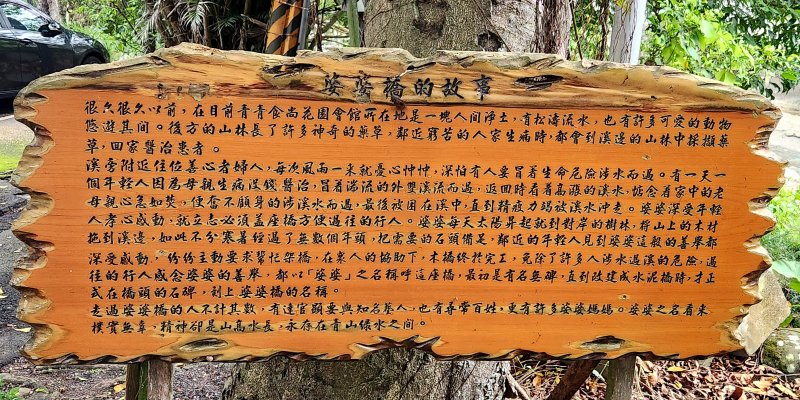 婆婆橋的故事
很久很久以前，在目前青青食尚花園會館所在地是一塊人間淨土，有松濤流水，也有許多可愛的動物
悠遊其間。後方的山林長了許多神奇的藥草，鄰近窮苦的人家生病時，都會到溪邊的山林中採擷藥
草，回家醫治患者。
溪旁附近住位善心老婦人，每次風雨一來就憂心忡忡，深怕有人要冒著生命危險涉水而過。有一天一
個年輕人因為母親生病沒錢醫治，冒著湍流的外雙溪流而過，返回時看著高漲的溪水，惦念著家中的老
母親心急如焚，便奮不顧身的涉溪水而過，最後被困在溪中，直到精疲力竭被溪水沖走。婆婆深受年輕
人孝心感動，就立志必須蓋座橋方便過往的行人。婆婆每天太陽昇起就到對岸的樹林，將山上的木材
拖到溪邊，如此不分寒暑經過了無數個年頭，把需要的石頭備足，鄰近的年輕人見到婆婆這般的善舉都
深受感動，紛紛主動要求幫忙架橋，在眾人的協助下，木橋終於完工，免除了許多人涉水過溪的危險，過
往的行人感念婆婆的善舉，都以「婆婆」之名稱呼這座橋，最初是有名無碑，直到改建成水泥橋時，才正
式在橋頭的石碑，刻上婆婆橋的名稱。
走過婆婆橋的人不計其數，有達官顯要與知名藝人，也有尋常百姓，更有許多婆婆媽媽。婆婆之名看來
樸實無華，精神卻是山高水長，永存在青山綠水之間。